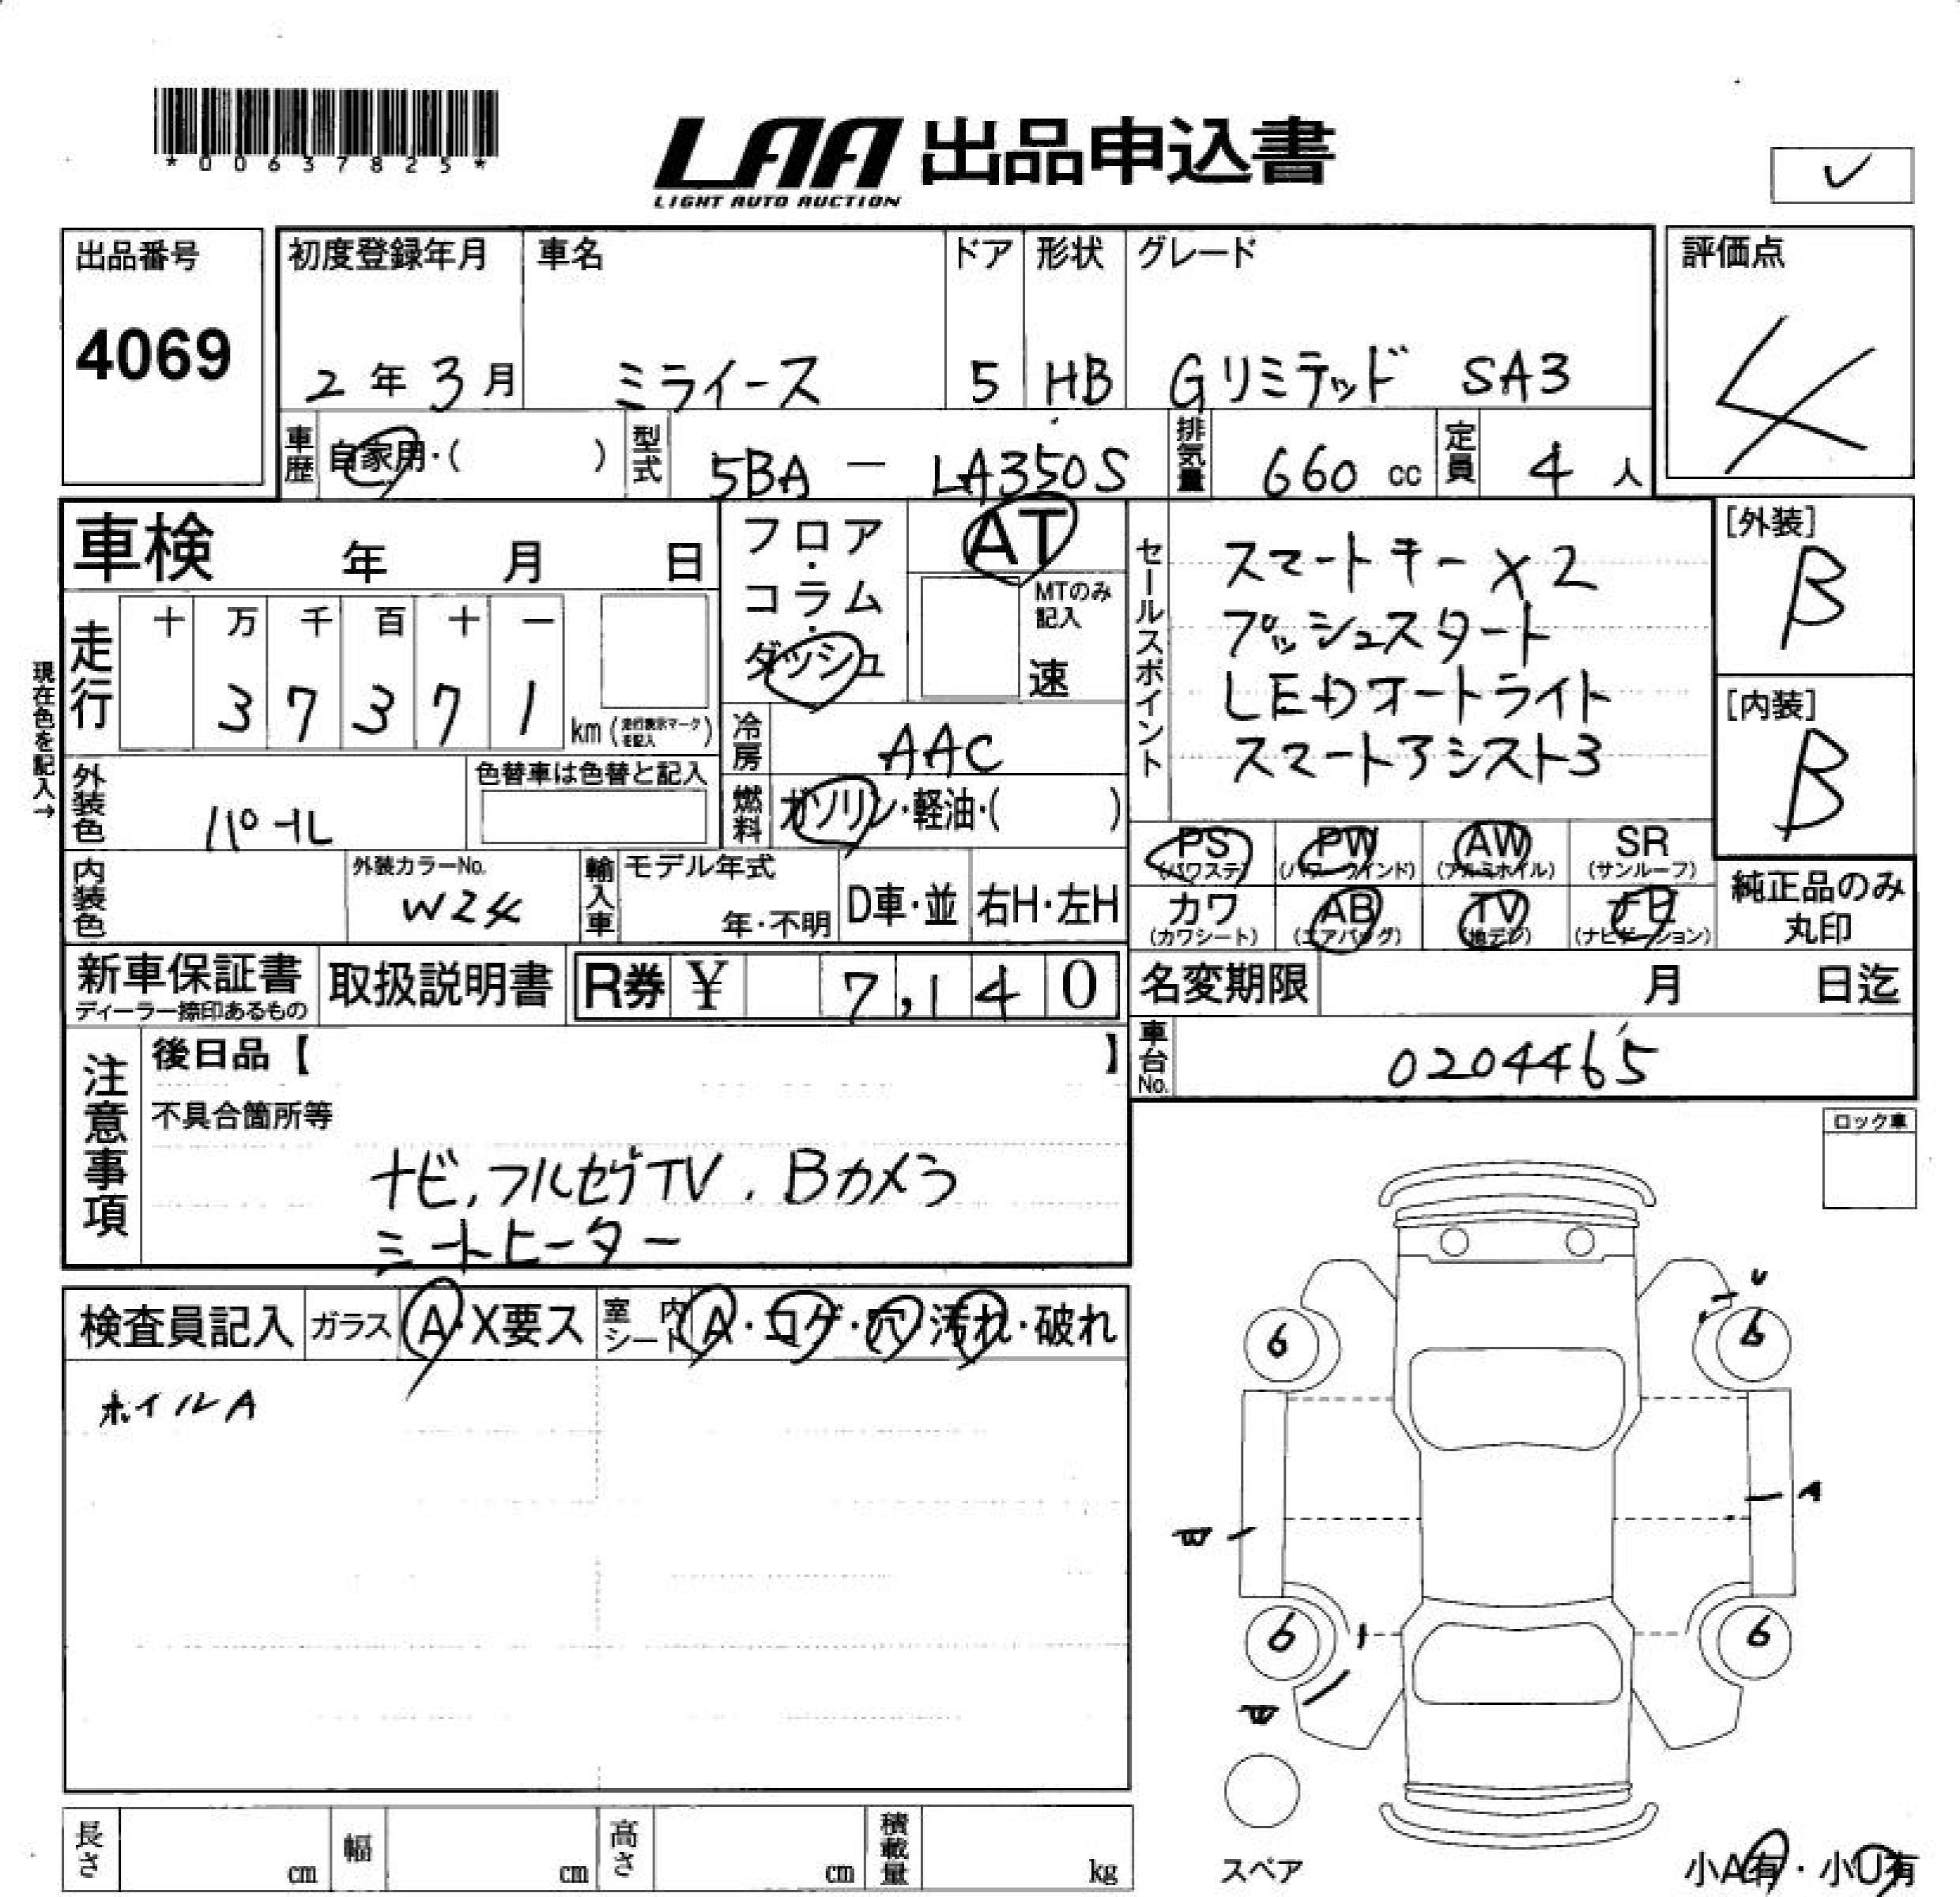 *00637825*
LAA 出品申込書
LIGHT AUTO AUCTION
出品番号
4069
初度登録年月
2年3月
車名
ミライース
ドア
5
形状
HB
グレード
Gリミテッド SA3
評価点
4
車歴 自家用・( )
型式 5BA － LA350S
排気量 660 cc
定員 4 人
車検 年 月 日
フロア・コラム・ダッシュ
AT
MTのみ記入
速
セールスポイント
スマートキー×2
プッシュスタート
LEDオートライト
スマートアシスト3
[外装]
B
[内装]
B
現在色を記入→
走行
十 万 千 百 十 一
3 7 3 7 1
km (走行表示マークを記入)
冷房 AAC
燃料 ガソリン・軽油・( )
外装色 パール
色替車は色替と記入
内装色
外装カラーNo.
W24
輸入車
モデル年式
年・不明
D車・並
右H・左H
PS (パワステ)
PW (パワーウインド)
AW (アルミホイル)
SR (サンルーフ)
カワ (カワシート)
AB (エアバッグ)
TV (地デジ)
(ナビゲーション)
純正品のみ丸印
新車保証書
ディーラー捺印あるもの
取扱説明書
R券 ¥ 7,140
名変期限 月 日迄
車台No. 0204465
注意事項
後日品【 】
不具合箇所等
ナビ, フルセグTV, Bカメラ
シートヒーター
ロック車
検査員記入
ガラス A・X要ス
室内シート A・コゲ・穴・汚れ・破れ
ホイルA
U
6
6
A
W
6
6
W
スペア
長さ cm
幅 cm
高さ cm
積載量 kg
小A有・小U有